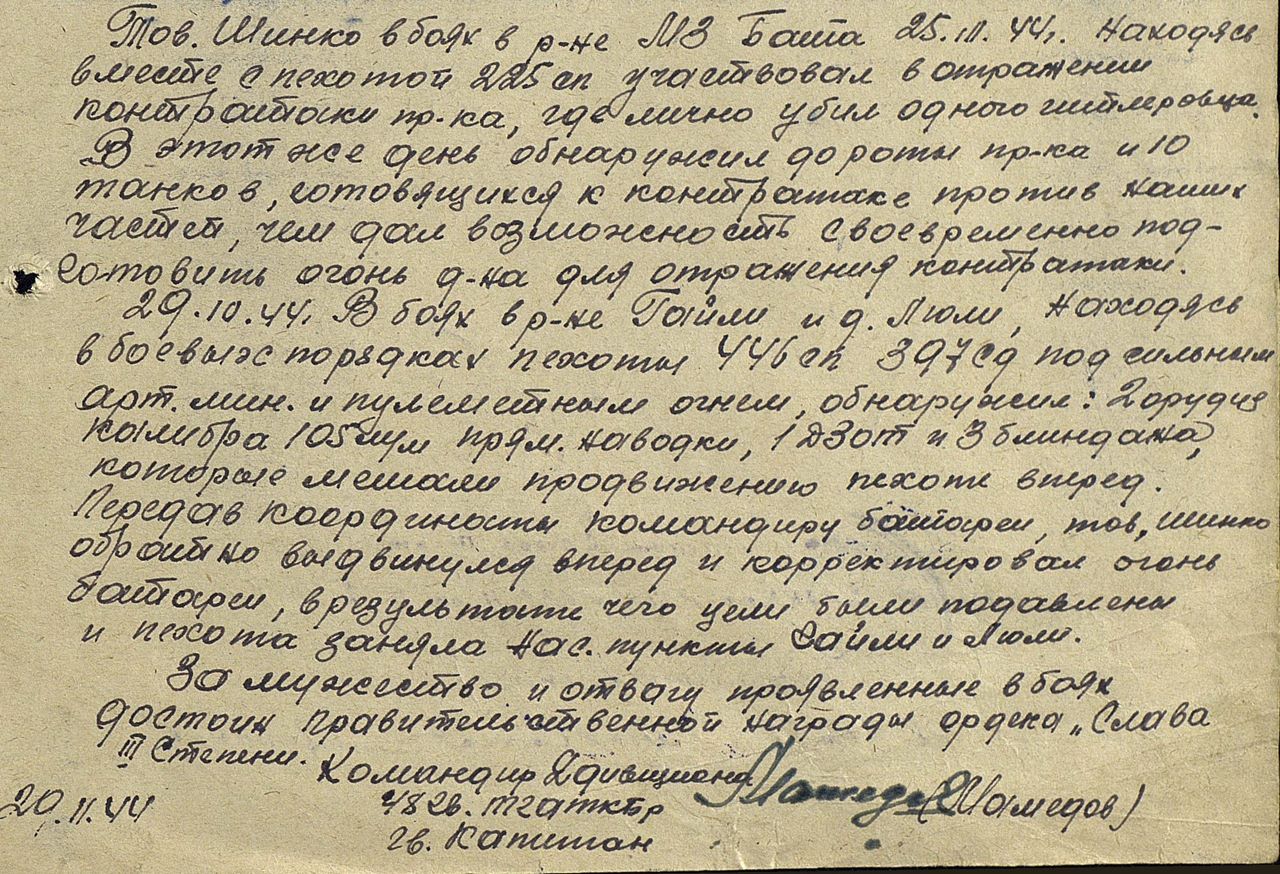 Тов. Шинко в боях в р-не МЗ Бата 25.11.44г. Находясь
вместе с пехотой 225 сп участвовал в отражении
контратаки пр-ка, где лично убил одного гитлеровца.
В этот же день обнаружил до роты пр-ка и 10
танков, готовящихся к контратаке против наших
частей, чем дал возможность своевременно под-
готовить огонь д-на для отражения контратаки.
29.10.44г. В боях в р-не Гайли и д. Люли, находясь
в боевых порядках пехоты 446 сп 397 сд под сильным
арт. мин. и пулеметным огнем, обнаружил: 2 орудия
калибра 105 м/м прям. наводки, 1 ДЗОТ и 3 блиндажа,
которые мешали продвижению пехоте вперед.
Передав координаты командиру батареи, тов. Шинко
обратно выдвинулся вперед и корректировал огонь
батареи, в результате чего цели были подавлены
и пехота заняла нас. пункты Гайли и Люли.
За мужество и отвагу проявленные в боях
достоин правительственной награды ордена „Слава
III Степени.
Командир 2 дивизиона
48 гв. тгаткбр (Мамедов)
20.11.44
гв. Капитан